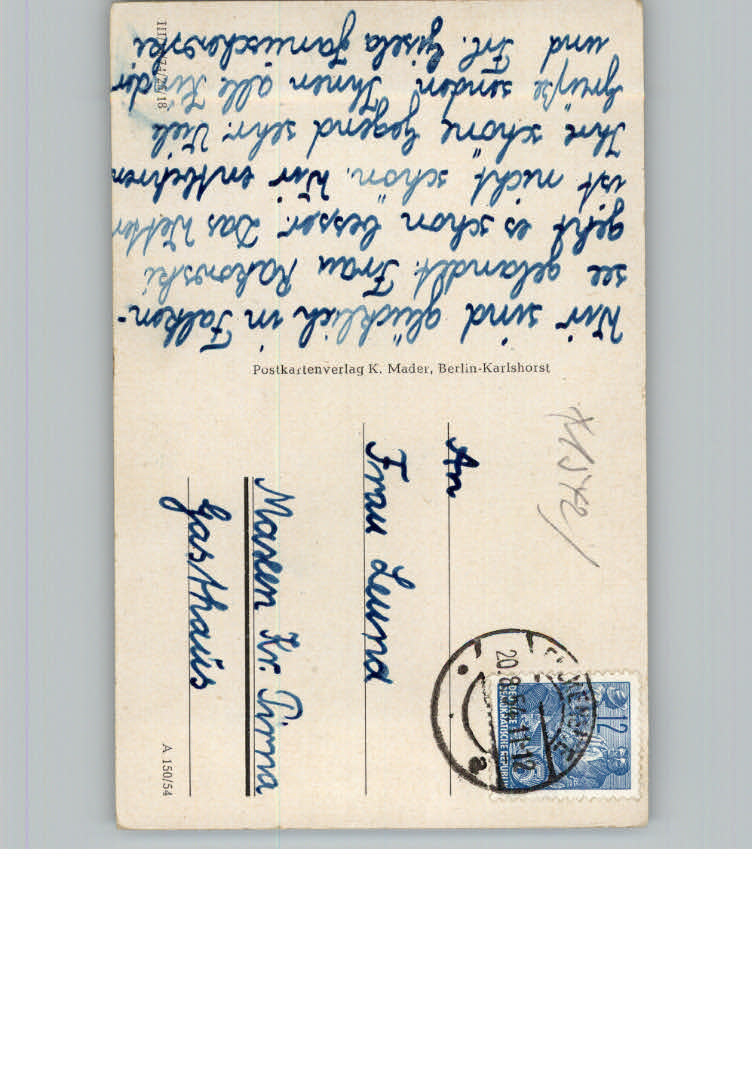 Wir sind glücklich in Falken-
see gelandet. Frau Rakowski
geht es schon besser. Das Wetter
ist nicht schön. Wir entbehren
Ihre schöne Gegend sehr. Viele
Grüße senden Ihnen alle Kinder
und Frl. Gisela
Postkartenverlag K. Mader, Berlin-Karlshorst
An
Frau Leund
Maxen Kr. Pirna
Gasthaus
A 150/54
12
DEUTSCHE
DEMOKRATISCHE REPUBLIK
FALKENSEE
a